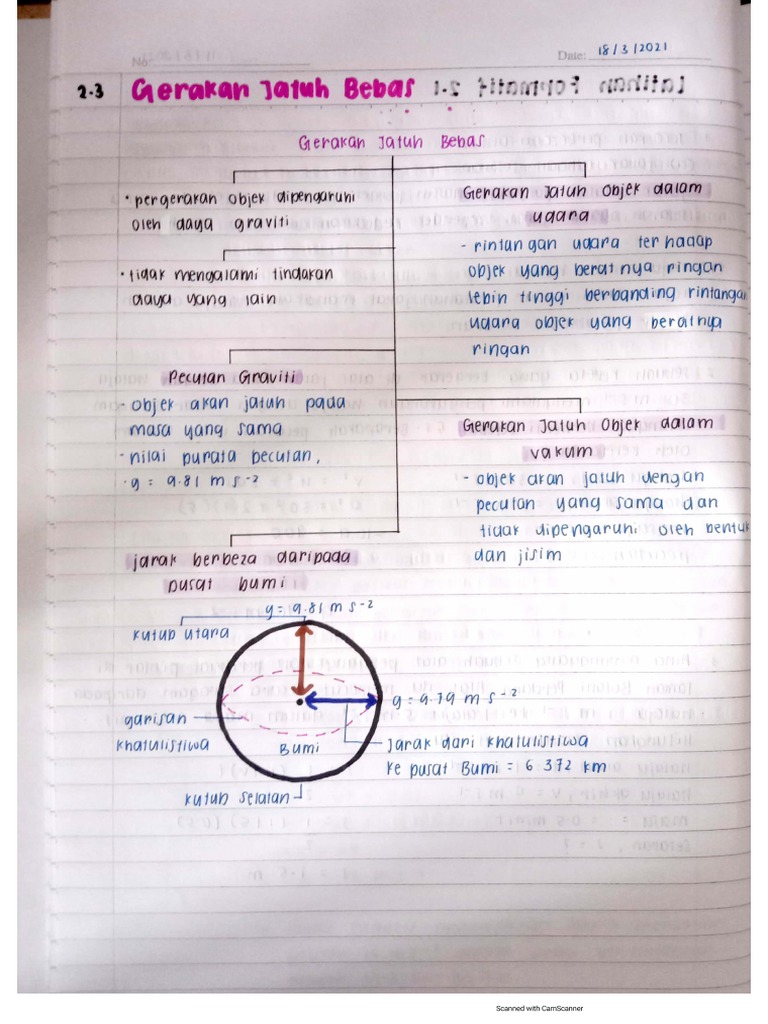 No:
Date: 18/3/2021
2.3 Gerakan Jatuh Bebas
Gerakan Jatuh Bebas
• pergerakan objek dipengaruhi
oleh daya graviti
• tidak mengalami tindakan
daya yang lain
Pecutan Graviti
- objek akan jatuh pada
masa yang sama
- nilai purata pecutan,
. g = 9.81 m s-2
jarak berbeza daripada
pusat bumi
Gerakan Jatuh Objek dalam
udara
- rintangan udara terhadap
objek yang beratnya ringan
lebih tinggi berbanding rintangan
udara objek yang beratnya
ringan
Gerakan Jatuh Objek dalam
vakum
- objek akan jatuh dengan
pecutan yang sama dan
tidak dipengaruhi oleh bentuk
dan jisim
g = 9.81 m s-2
kutub utara
g = 9.79 m s-2
garisan
khatulistiwa
Bumi
Jarak dari khatulistiwa
ke pusat Bumi = 6 372 km
kutub selatan
Scanned with CamScanner